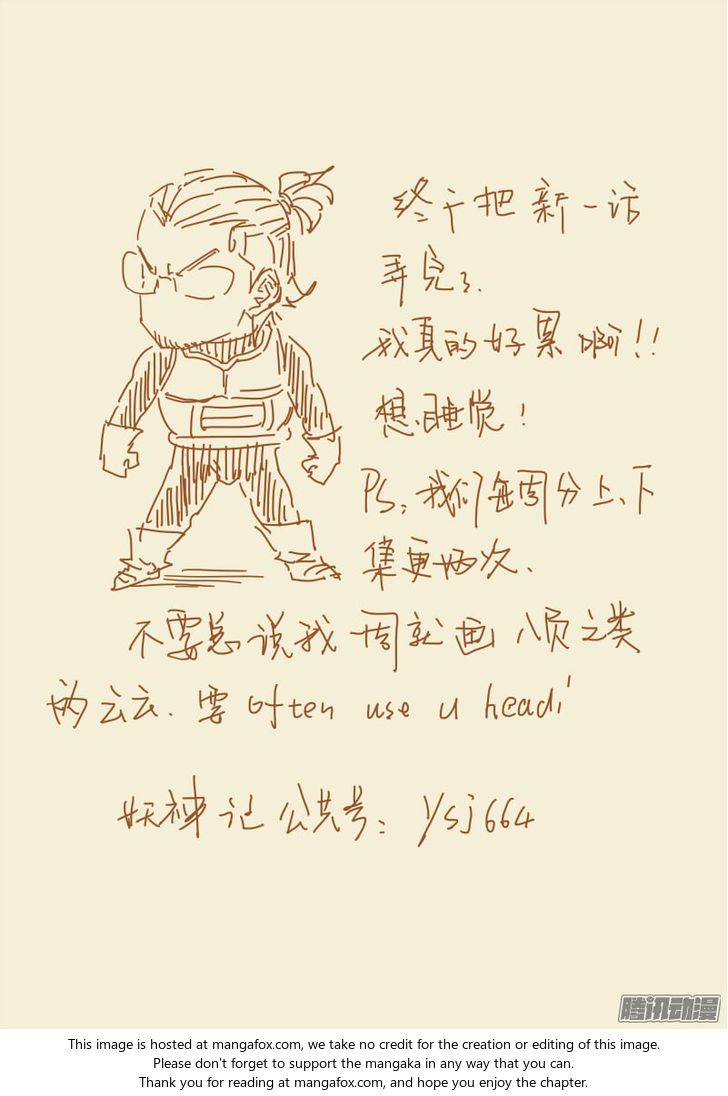 终于把新一话
弄完了.
我真的好累啊!!
想睡觉!
Ps, 我们每周分上、下
集更两次.
不要总说我一周就画八页之类
的云云. 要 often use u head!
妖神记公共号: ysj664
腾讯动漫
This image is hosted at mangafox.com, we take no credit for the creation or editing of this image.
Please don't forget to support the mangaka in any way that you can.
Thank you for reading at mangafox.com, and hope you enjoy the chapter.